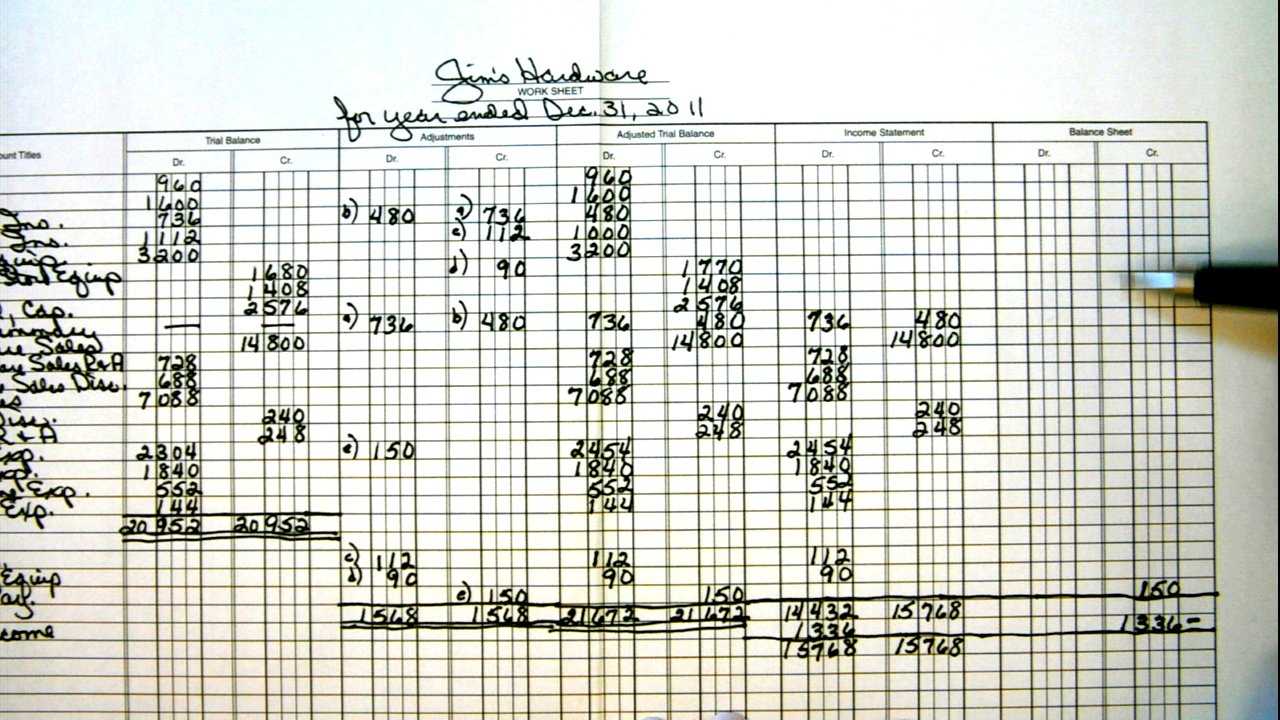 Jim's Hardware
WORK SHEET
for year ended Dec. 31, 2011
unt Titles Trial Balance Adjustments Adjusted Trial Balance Income Statement Balance Sheet
Dr. Cr. Dr. Cr. Dr. Cr. Dr. Cr. Dr. Cr.
960 960
1600 1600
Ins. 736 b) 480 a) 736 480
Ins. 1112 c) 112 1000
3200 3200
Store Equip 1680 d) 90 1770
1408 1408
, Cap. 2576 2576
— — a) 736 b) 480 736 480 736 480
Sales 14800 14800 14800
Sales R+A 728 728 728
Sales Disc. 688 688 688
es 7088 7088 7088
Disc. 240 240 240
R + A 248 248 248
Exp. 2304 e) 150 2454 2454
Exp. 1840 1840 1840
Exp. 552 552 552
Exp. 144 144 144
20952 20952
c) 112 112 112
Equip d) 90 90 90
ay. e) 150 150 150
1568 1568 21672 21672 14432 15768
come 1336 1336-
15768 15768